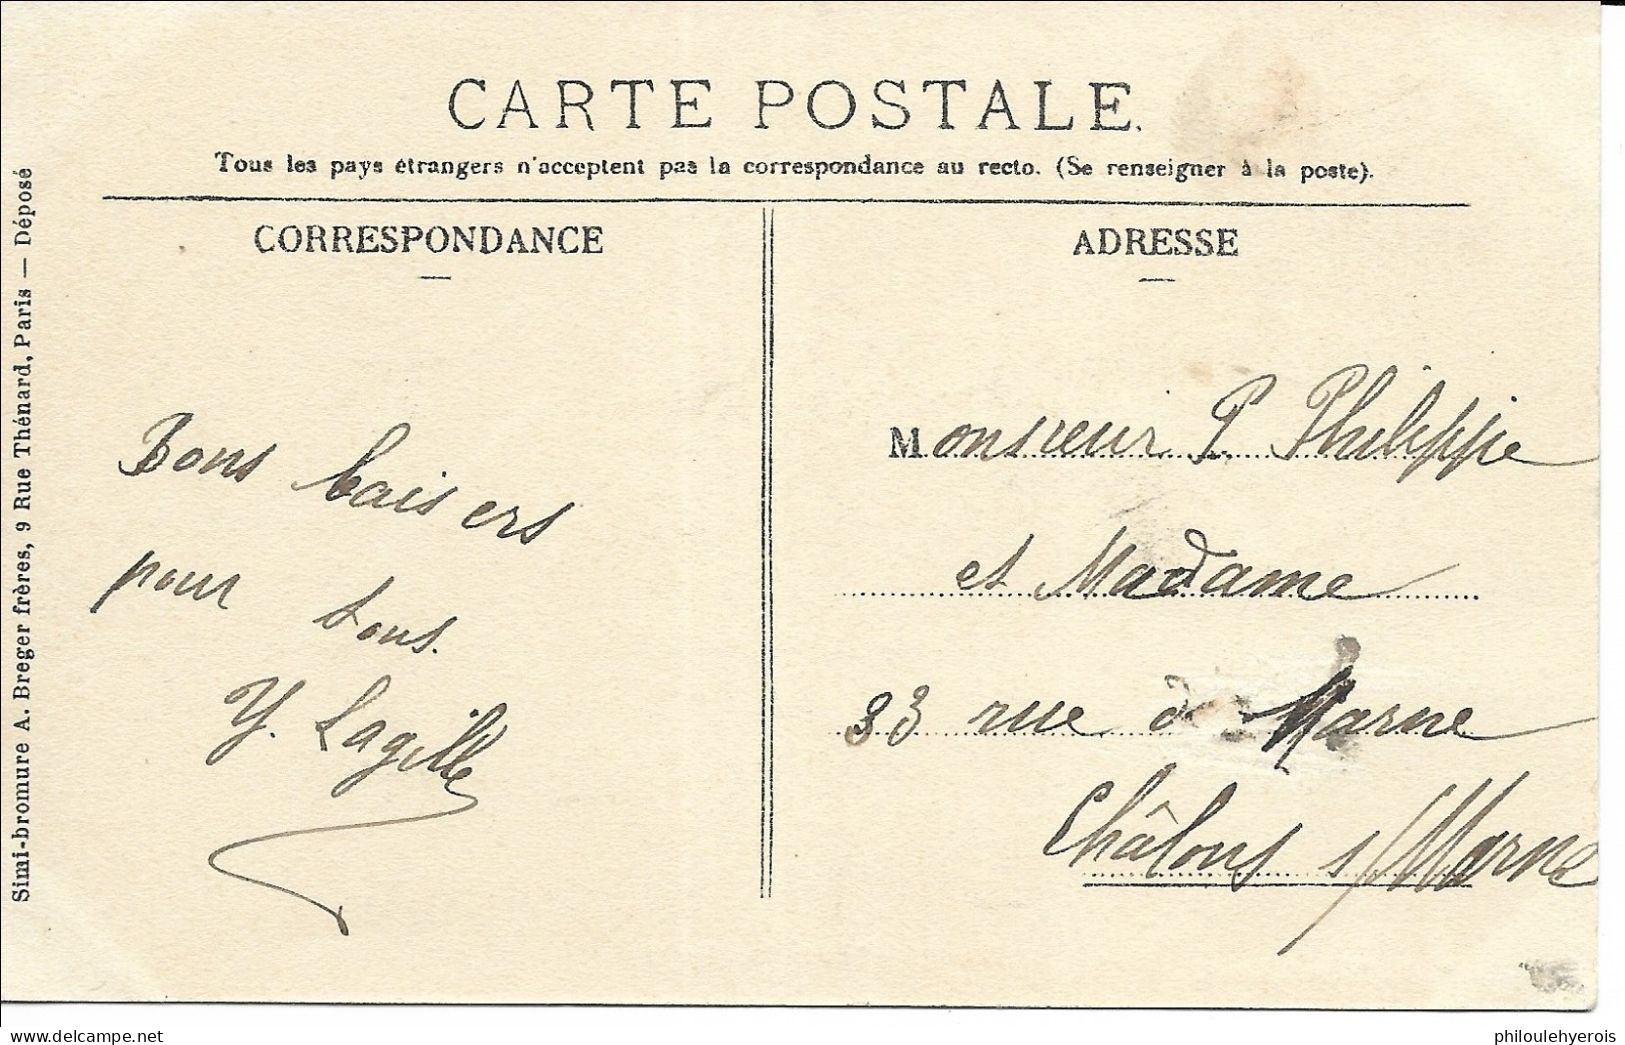 CARTE POSTALE.
Tous les pays étrangers n'acceptent pas la correspondance au recto. (Se renseigner à la poste).
CORRESPONDANCE
Bons baisers
pour tous.
Y. Lagille
ADRESSE
Monsieur P. Philippe
et Madame
33 rue de Marne
Châlons s/Marne
Simi-bromure A. Breger frères, 9 Rue Thénard, Paris — Déposé
www.delcampe.net
philoulehyerois